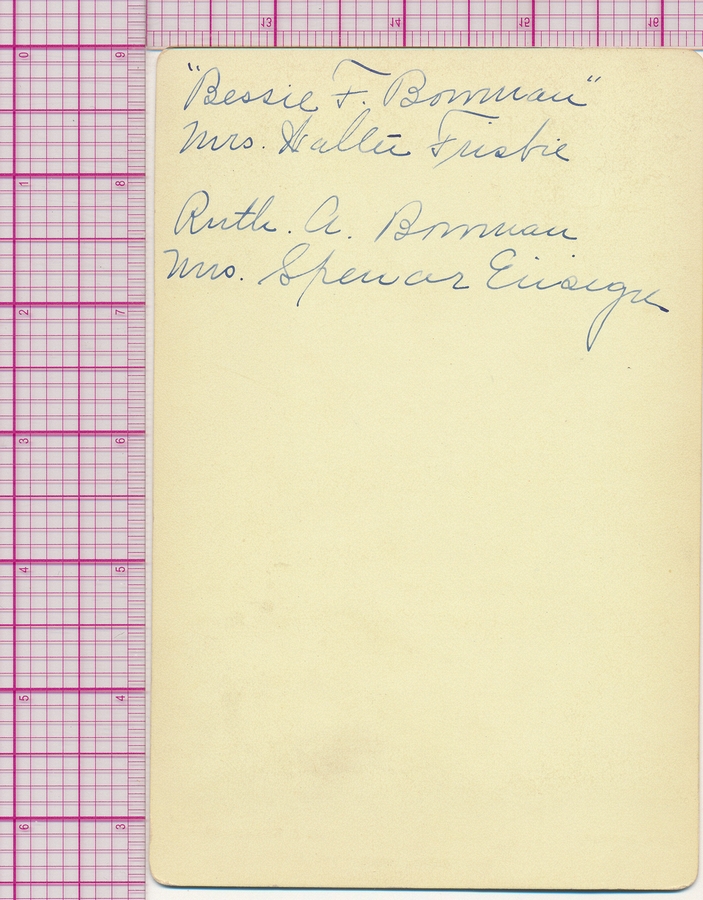 13 14 15 16
0 9
1 8
2 7
3 6
4 5
5 4
6 3
"Bessie F. Bowman"
Mrs. Hallie Frisbie
Ruth. A. Bowman
Mrs. Spencer Ensign